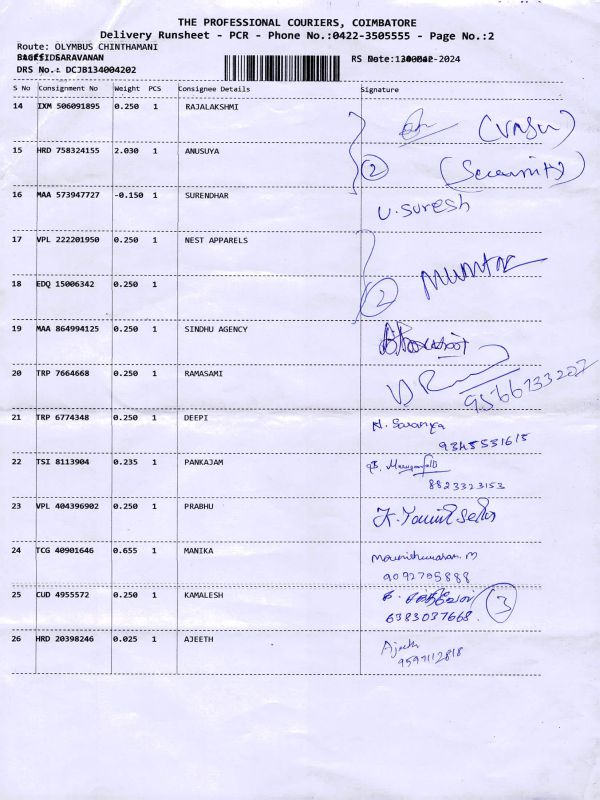 THE PROFESSIONAL COURIERS, COIMBATORE
Delivery Runsheet - PCR - Phone No.:0422-3505555 - Page No.:2
Route: OLYMBUS CHINTHAMANI
SARAVANAN RS Date: 2024
DRS No.: DCJB134004202
S No Consignment No Weight PCS Consignee Details Signature
14 IXM 506091895 0.250 1 RAJALAKSHMI (VASU)
15 HRD 758324155 2.030 1 ANUSUYA 2 (Security)
16 MAA 573947727 -0.150 1 SURENDHAR U. Suresh
17 VPL 222201950 0.250 1 NEST APPARELS
18 EDQ 15006342 0.250 1 2
19 MAA 864994125 0.250 1 SINDHU AGENCY
20 TRP 7664668 0.250 1 RAMASAMI 9566733207
21 TRP 6774348 0.250 1 DEEPI Saranya
9345531615
22 TSI 8113904 0.235 1 PANKAJAM
8823323153
23 VPL 404396902 0.250 1 PRABHU
24 TCG 40901646 0.655 1 MANIKA
9092705888
25 CUD 4955572 0.250 1 KAMALESH 3
6383037668.
26 HRD 20398246 0.025 1 AJEETH Ajeeth
9597112818